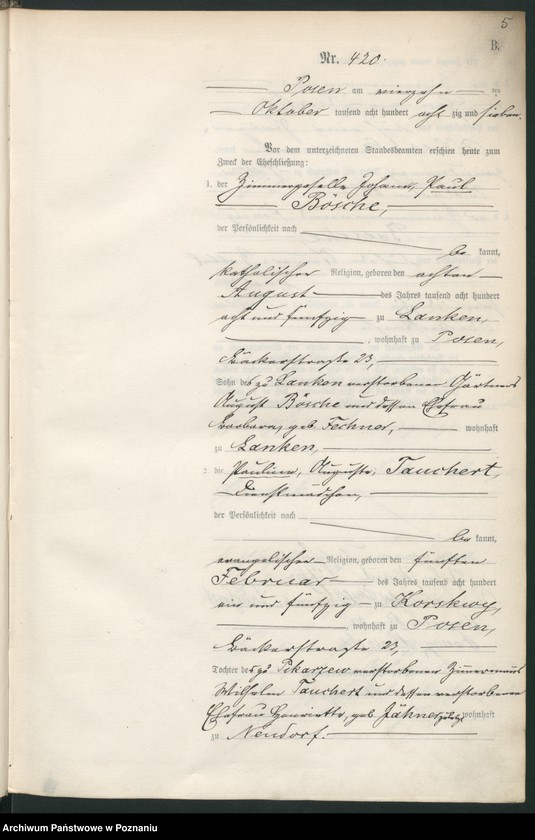 5
B.
Nr. 420.
Posen am vierzehn ten
Oktober tausend acht hundert acht zig und sieben.
Vor dem unterzeichneten Standesbeamten erschien heute zum
Zweck der Eheschließung:
1. der Zimmergeselle Johann, Paul
Bösche,
der Persönlichkeit nach
be kannt,
katholischer Religion, geboren den achten
August des Jahres tausend acht hundert
acht und fünfzig zu Lanken,
, wohnhaft zu Posen,
Bäckerstraße 23,
Sohn des zu Lanken verstorbenen Gärtners
August Bösche und dessen Ehefrau
Barbara, geb. Fechner, wohnhaft
zu Lanken,
2. die Pauline, Auguste, Tauchert,
Dienstmädchen,
der Persönlichkeit nach
be kannt,
evangelischer Religion, geboren den fünften
Februar des Jahres tausend acht hundert
ein und fünfzig zu Korskwy,
wohnhaft zu Posen,
Bäckerstraße 23,
Tochter des zu Pkarzew verstorbenen
Wilhelm Tauchert und dessen verstorbenen
Ehefrau Henriette, geb. Jähner, zuletzt wohnhaft
zu Neudorf.
Archiwum Państwowe w Poznaniu